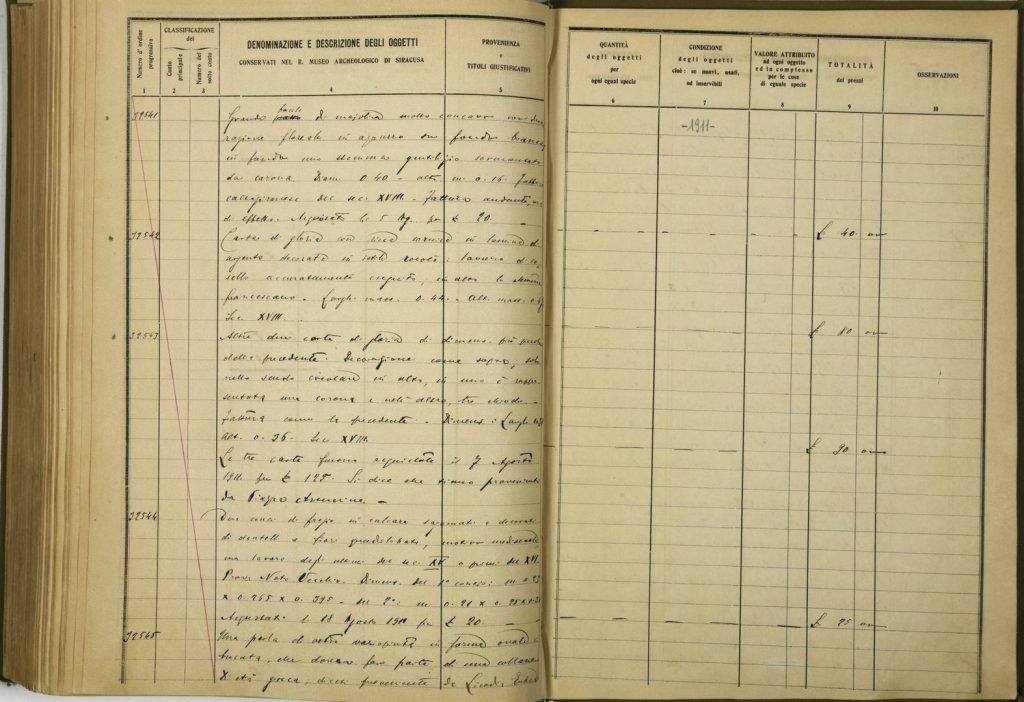 Numero d'ordine progressivo
CLASSIFICAZIONE del
Conto principale
Numero del sotto conto
DENOMINAZIONE E DESCRIZIONE DEGLI OGGETTI
CONSERVATI NEL R. MUSEO ARCHEOLOGICO DI SIRACUSA
PROVENIENZA
e
TITOLI GIUSTIFICATIVI
1 2 3 4 5
32541 Grande bacile di majolica molto concavo con
ragione floreale in azzurro su fondo bianco
in fondo uno stemma gentilizio sormontato
da corona. Diam. 0.40 - alt. m 0.16.
caltagironese del sec. XVIII - Fattura andante, ma
di effetto. Acquistato il 5 Ag. per £ 20. —
32542 Carta di gloria con ricca cornice in lamina d'
argento decorata in stile rococò; lavoro di ce-
sello accuratamente eseguito, in alto lo stemma
francescano. Largh. mass. 0.44. Alt. mass.
Sec. XVIII.
32543 Altre due carte di gloria di dimens. più
della precedente. Decorazione come sopra, solo
nello scudo circolare in alto, in uno è rappre-
sentata una corona e nell'altro, tre chiodi.
Fattura come la precedente. Dimens: Largh.
Alt. 0.36. Sec XVIII.
Le tre carte furono acquistate il 7 Agosto
1911 per £ 125. Si dice che siano provenienti
da Piazza Armerina. —
32544 Due conci di fregio in calcare sagomati e decorati
di dentelli e fiori quadrilobati, motivo medioevale
ma lavoro degli ultimi del sec. XV o primi del XVI.
Prov. Noto Vecchio. Dimens. del 1° concio: m 0.23
x 0.265 x 0.395 - del 2°: m. 0.21 x 0.25 x
Acquistati il 18 Agosto 1911 per £ 20. —
32545 Una perla di vetro variopinta in forma ovale
bucata, che doveva fare parte di una collana
di età greca, dicesi proveniente da Licodia Eubea
QUANTITÀ
degli oggetti
per
ogni egual specie
CONDIZIONE
degli oggetti
cioè: se nuovi, usati,
od inservibili
VALORE ATTRIBUITO
ad ogni oggetto
ed in complesso
per le cose
di eguale specie
TOTALITÀ
dei prezzi
OSSERVAZIONI
6 7 8 9 10
-1911-
£ 40. 00
£ 80 00
£ 90 00
£ 25 00